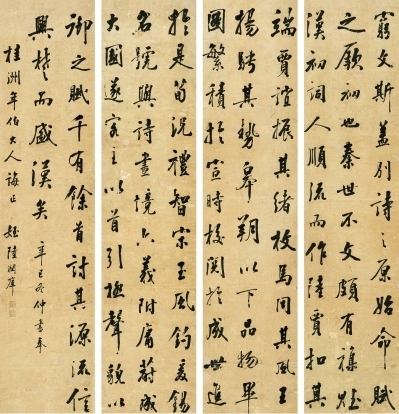 窮文斯蓋別詩之原始命賦
之厥初也秦世不文頗有雜賦
漢初詞人順流而作陸賈扣其
端賈誼振其緒枚馬同其風王
揚騁其勢皋朔以下品物畢
圖繁積於宣時校閱於成世進
於是荀況禮智宋玉風釣爰錫
名號與詩畫境六義附庸蔚成
大國遂客主以首引極聲貌以
御之賦千有餘首討其源流信
興楚而盛漢矣 辛巳冬仲書奉
桂洲年伯大人誨正 姪陸潤庠